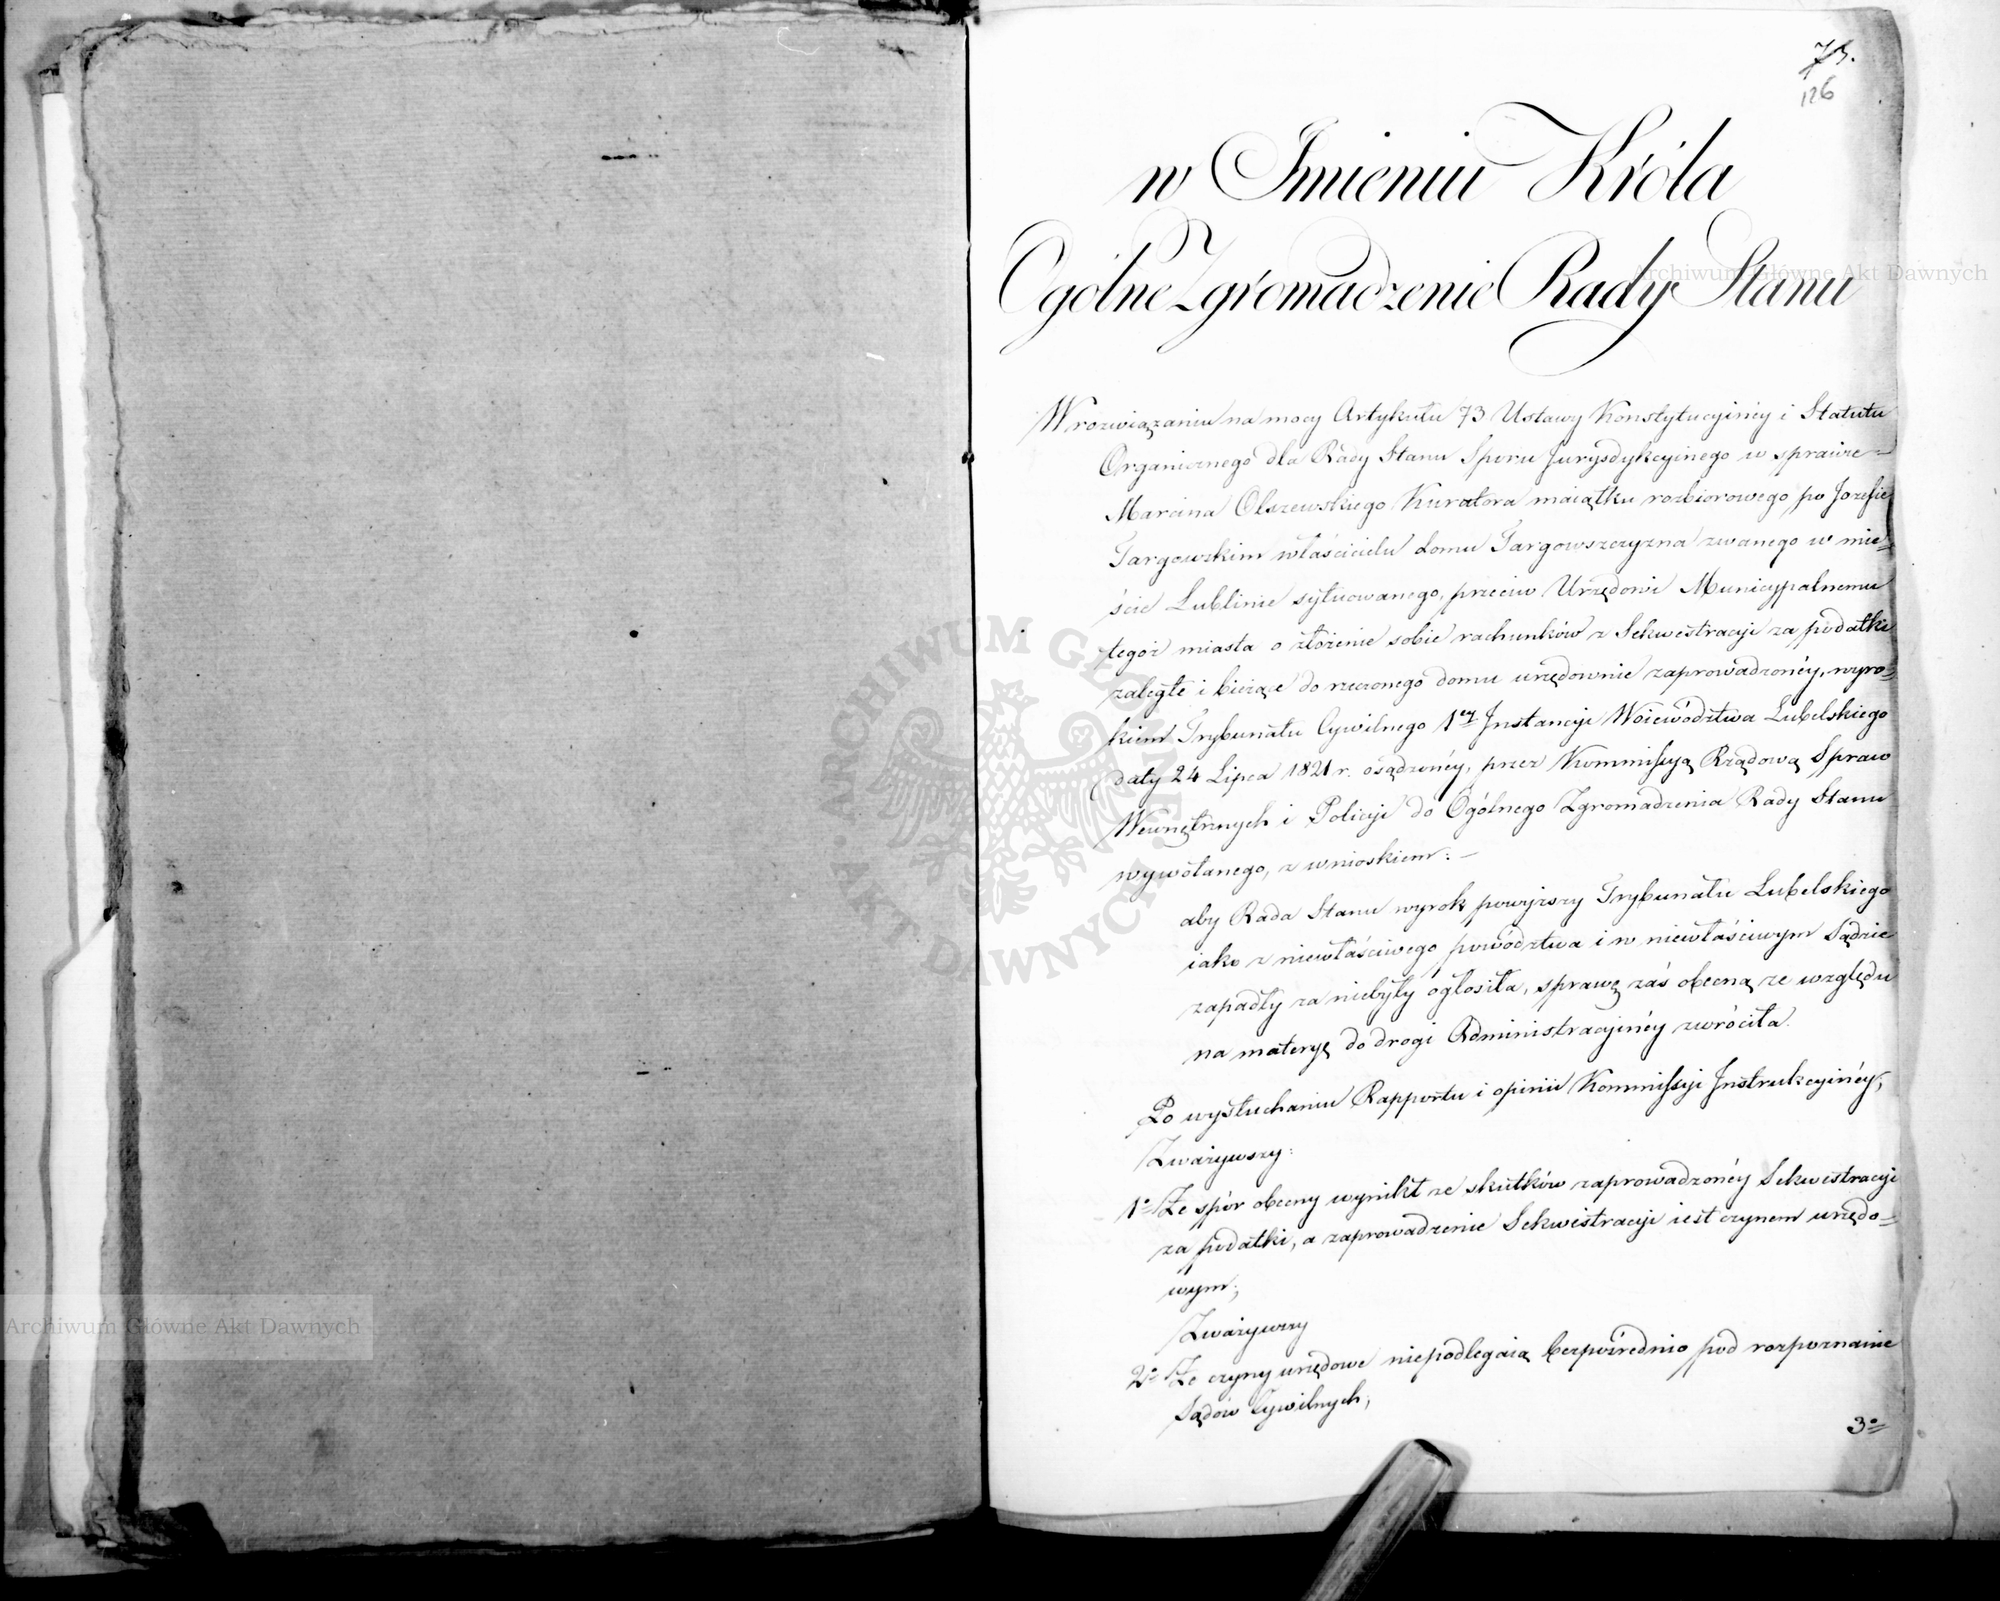 73.
126
w Imieniu Króla
Ogólne Zgromadzenie Rady Stanu
W rozwiązaniu na mocy Artykułu 73 Ustawy Konstytucyinéy i Statutu
Organicznego dla Rady Stanu Sporu Jurysdykcyinego w sprawie
Marcina Olszewskiego Kuratora maiątku rozbiorowego po Jozefie
Targowskim właścicielu domu Targowszczyzna zwanego w mie=
ście Lublinie sytuowanego, przeciw Urzędowi Municypalnemu
tegoż miasta o złożenie sobie rachunków z Sekwestracyi za podatki
zaległe i bieżące do rzeczonego domu urzędownie zaprowadzonéy, wyro=
kiem Trybunału Cywilnego 1ey Instancyi Woiewództwa Lubelskiego
daty 24 Lipca 1821 r. osądzonéy, przez Kommissyą Rządową Spraw
Wewnętrznych i Policyi do Ogólnego Zgromadzenia Rady Stanu
wywołanego, z wnioskiem: –
aby Rada Stanu wyrok powyższy Trybunału Lubelskiego
iako z niewłaściwego powództwa i w niewłaściwym Sądzie
zapadły za niebyły ogłosiła, sprawę zaś obecną ze względu
na materyę do drogi Administracyinéy zwróciła.
Po wysłuchaniu Rapportu i opinii Kommissyi Instrukcyinéy,
Zważywszy:
1o Że spór obecny wynikł ze skutków zaprowadzonéy Sekwestracyi
za podatki, a zaprowadzenie Sekwestracyi iest czynem urzędo=
wym;
Zważywszy
2o Że czyny urzędowe niepodlegaią bezpośrednio pod rozpoznanie
Sądów Cywilnych;
3o
Archiwum Główne Akt Dawnych
Archiwum Główne Akt Dawnych
ARCHIWUM GŁÓWNE AKT DAWNYCH